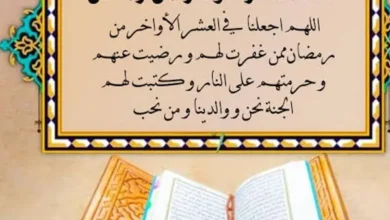 اللهم اجعلنا في العشر الأواخر من
رمضان ممن غفرت لهم و رضيت عنهم
و حرمتهم على النار و كتبت لهم
الجنة نحن و والدينا و من نحب